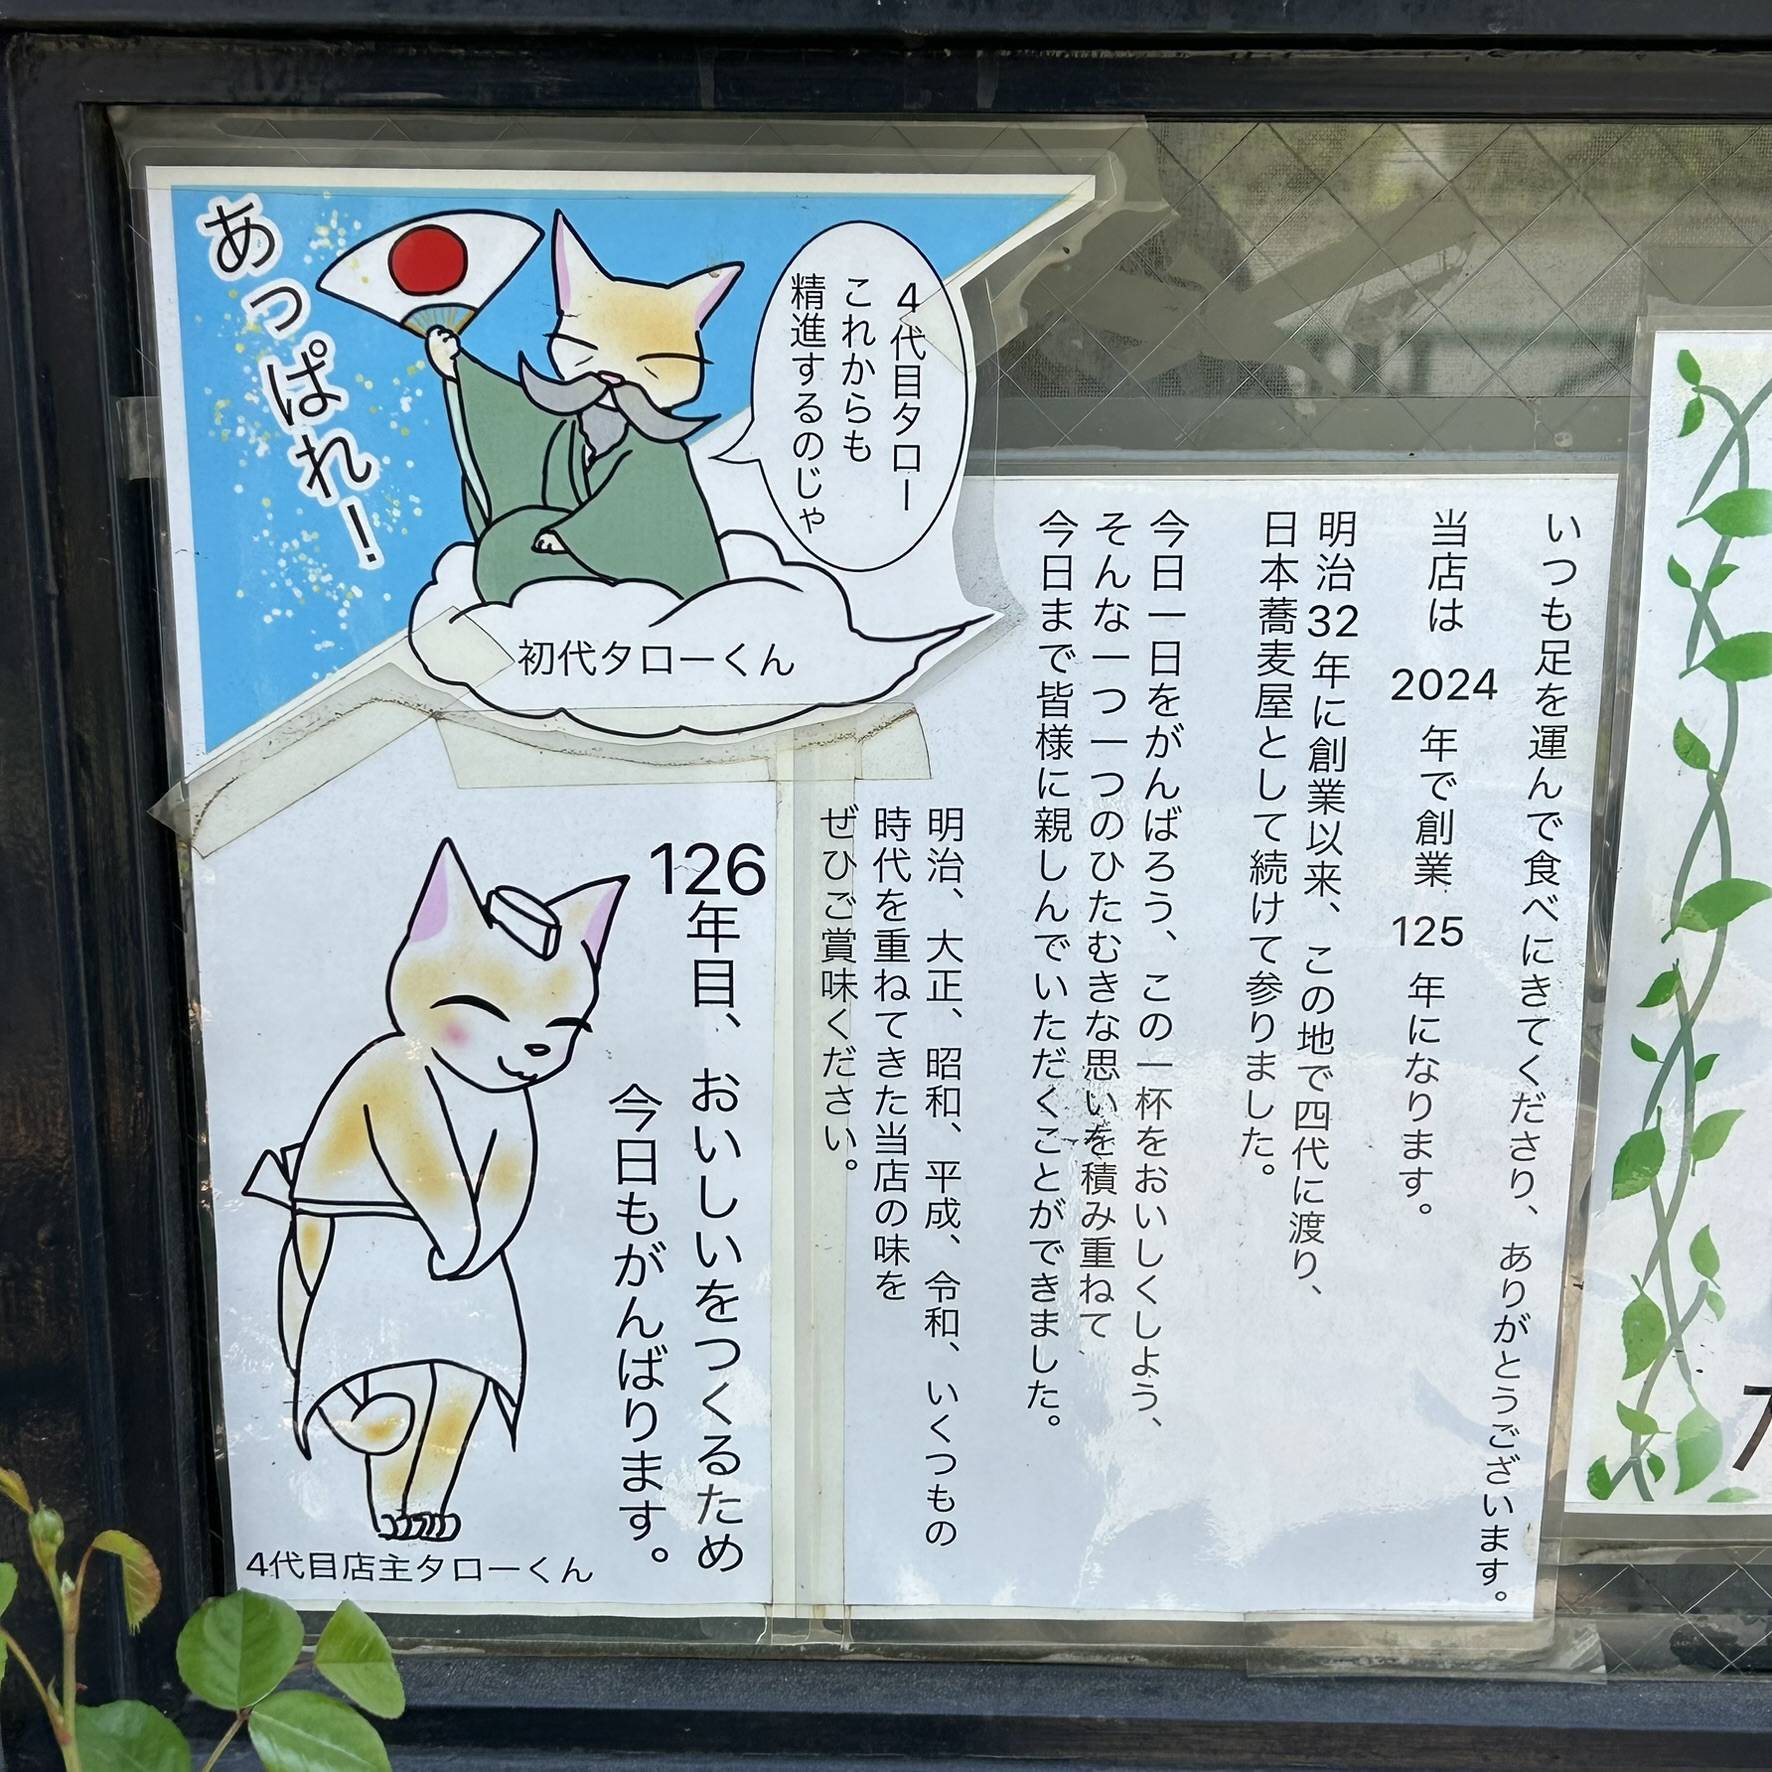 あっぱれ！
4代目タロー
これからも
精進するのじゃ
初代タローくん
いつも足を運んで食べにきてくださり、ありがとうございます。
当店は2024年で創業125年になります。
明治32年に創業以来、この地で四代に渡り、
日本蕎麦屋として続けて参りました。
今日一日をがんばろう、この一杯をおいしくしよう、
そんな一つ一つのひたむきな思いを積み重ねて
今日まで皆様に親しんでいただくことができました。
明治、大正、昭和、平成、令和、いくつもの
時代を重ねてきた当店の味を
ぜひご賞味ください。
126年目、おいしいをつくるため
今日もがんばります。
4代目店主タローくん